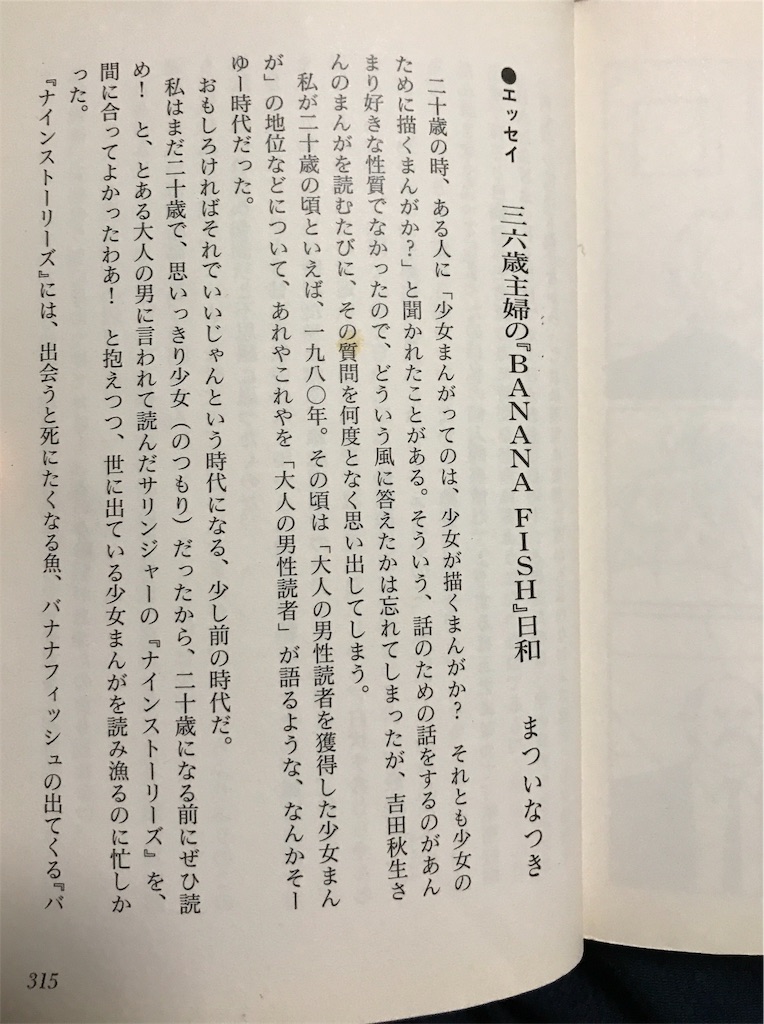 ●エッセイ 三六歳主婦の『BANANA FISH』日和 まついなつき
二十歳の時、ある人に「少女まんがってのは、少女が描くまんがか? それとも少女の
ために描くまんがか?」と聞かれたことがある。そういう、話のための話をするのがあん
まり好きな性質でなかったので、どういう風に答えたかは忘れてしまったが、吉田秋生さ
んのまんがを読むたびに、その質問を何度となく思い出してしまう。
私が二十歳の頃といえば、一九八〇年。その頃は「大人の男性読者を獲得した少女まん
が」の地位などについて、あれやこれやを「大人の男性読者」が語るような、なんかそー
ゆー時代だった。
おもしろければそれでいいじゃんという時代になる、少し前の時代だ。
私はまだ二十歳で、思いっきり少女(のつもり)だったから、二十歳になる前にぜひ読
め! と、とある大人の男に言われて読んだサリンジャーの『ナインストーリーズ』を、
間に合ってよかったわあ! と抱えつつ、世に出ている少女まんがを読み漁るのに忙しか
った。
『ナインストーリーズ』には、出会うと死にたくなる魚、バナナフィッシュの出てくる『バ
315